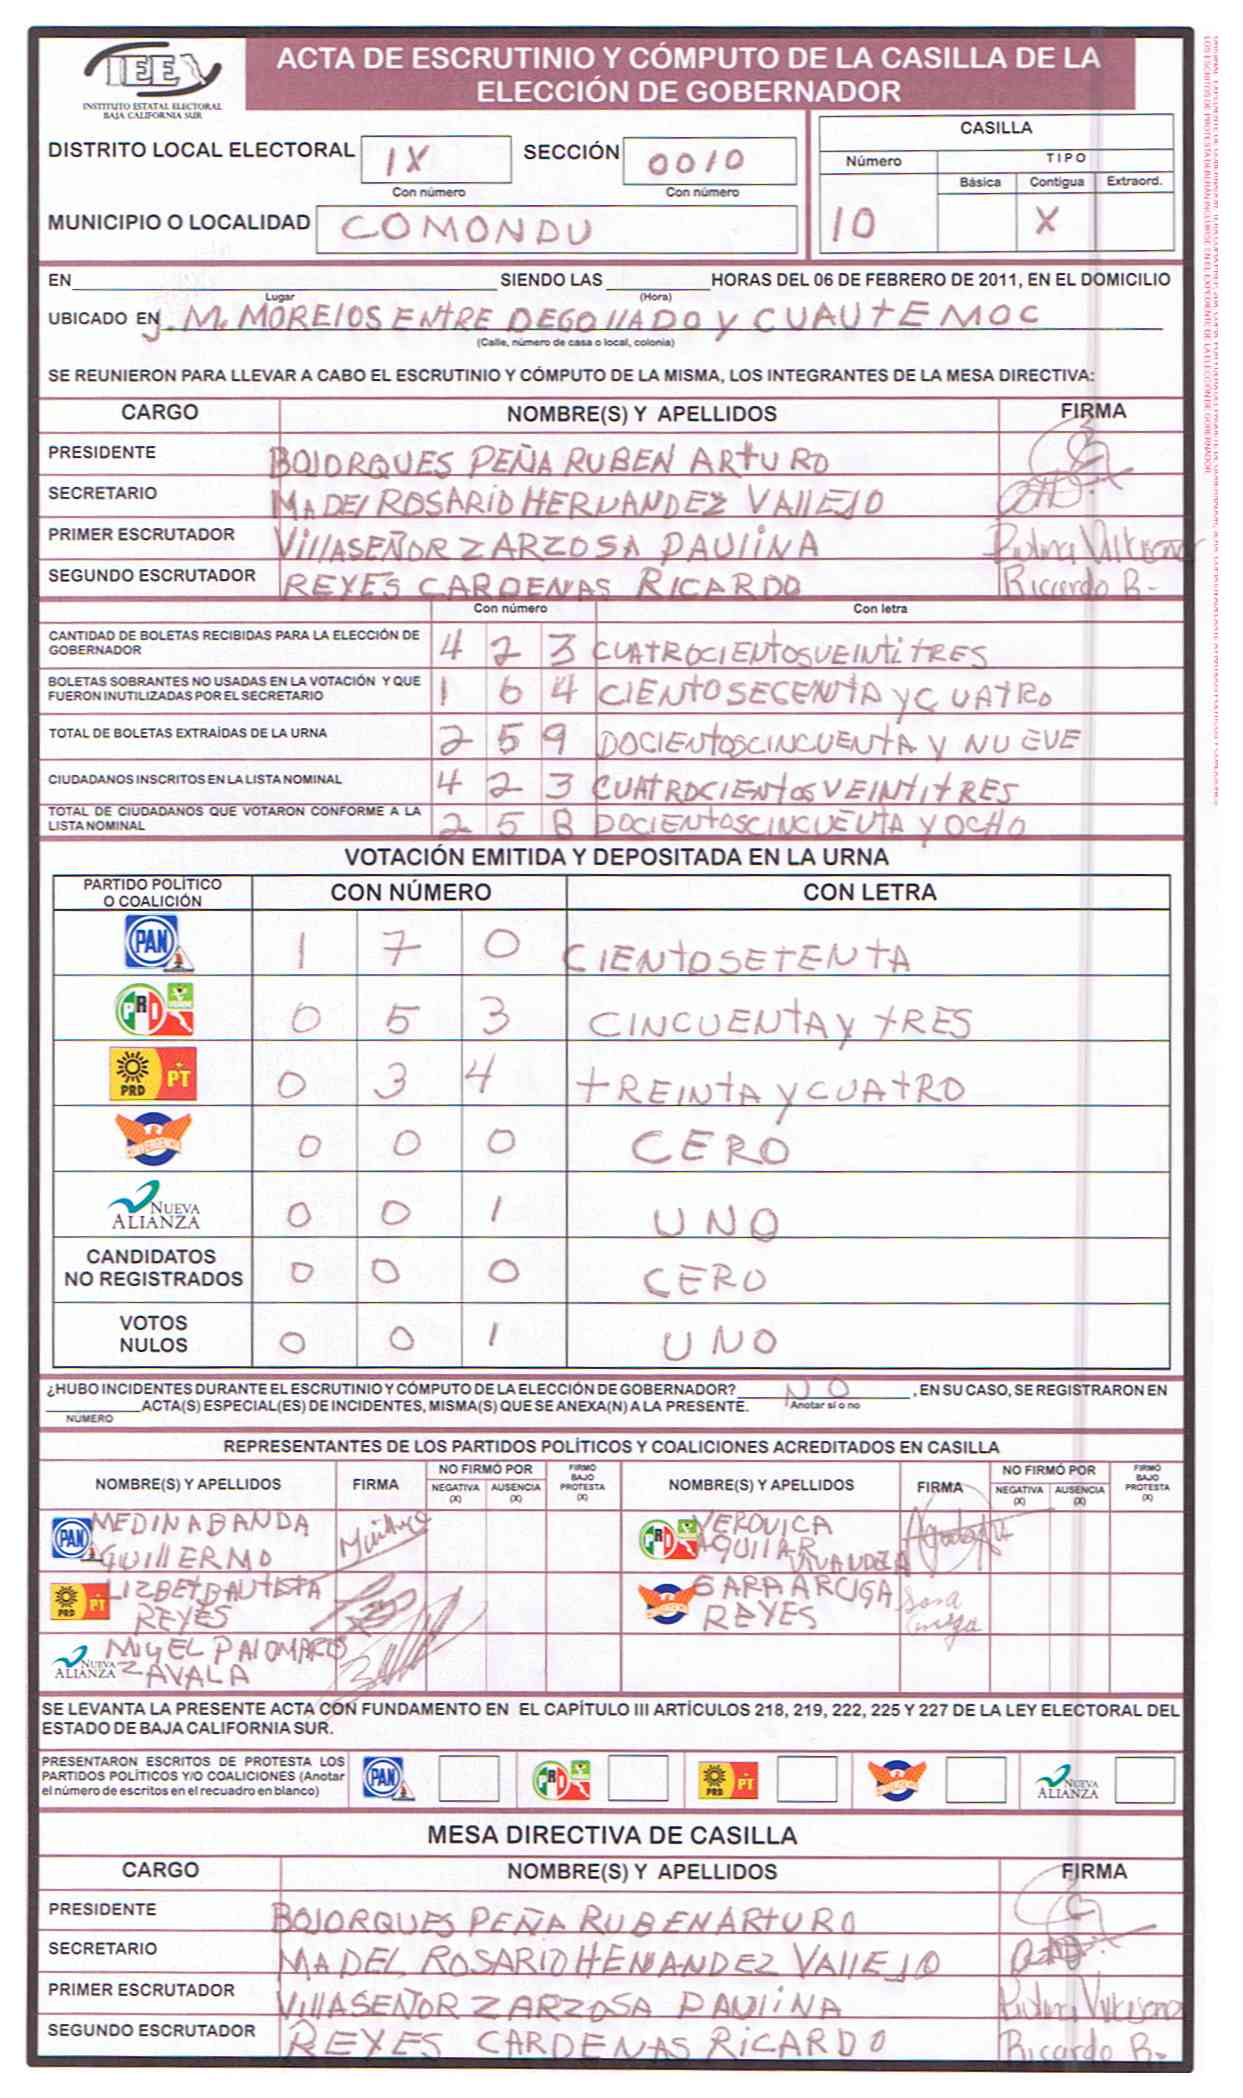 IEE
INSTITUTO ESTATAL ELECTORAL
BAJA CALIFORNIA SUR
ACTA DE ESCRUTINIO Y CÓMPUTO DE LA CASILLA DE LA
ELECCIÓN DE GOBERNADOR
DISTRITO LOCAL ELECTORAL IX SECCIÓN 0010
Con número Con número
MUNICIPIO O LOCALIDAD COMONDU
CASILLA
Número TIPO
Básica Contigua Extraord.
10 X
EN SIENDO LAS HORAS DEL 06 DE FEBRERO DE 2011, EN EL DOMICILIO
Lugar (Hora)
UBICADO EN J. M. MORElOS ENTRE DEGOllADO Y CUAUtEMOC
(Calle, número de casa o local, colonia)
SE REUNIERON PARA LLEVAR A CABO EL ESCRUTINIO Y CÓMPUTO DE LA MISMA, LOS INTEGRANTES DE LA MESA DIRECTIVA:
CARGO NOMBRE(S) Y APELLIDOS FIRMA
PRESIDENTE BOJORQUES PEÑA RUBEN ARtURO
SECRETARIO MA DEl ROSARIO HERNANDEZ VAllEJO
PRIMER ESCRUTADOR VillASEÑOR ZARZOSA PAULiNA
SEGUNDO ESCRUTADOR REYES CARDENAS RICARDO Ricardo R-
Con número Con letra
CANTIDAD DE BOLETAS RECIBIDAS PARA LA ELECCIÓN DE
GOBERNADOR 4 2 3 CUATROCIENtOSVEINtitRES
BOLETAS SOBRANTES NO USADAS EN LA VOTACIÓN Y QUE
FUERON INUTILIZADAS POR EL SECRETARIO 1 6 4 CIENtOSECENtA Y CUAtRO
TOTAL DE BOLETAS EXTRAÍDAS DE LA URNA 2 5 9 DOCIENtOSCINCUENtA Y NUEVE
CIUDADANOS INSCRITOS EN LA LISTA NOMINAL 4 2 3 CUAtROCIENtOS VEINtitRES
TOTAL DE CIUDADANOS QUE VOTARON CONFORME A LA
LISTA NOMINAL 2 5 8 DOCIENtOSCINCUENtA Y OCHO
VOTACIÓN EMITIDA Y DEPOSITADA EN LA URNA
PARTIDO POLÍTICO
O COALICIÓN CON NÚMERO CON LETRA
PAN 1 7 0 CIENtOSEtENtA
PRI 0 5 3 CINCUENtA Y tRES
PRD PT 0 3 4 tREINtA Y CUAtRO
CONVERGENCIA 0 0 0 CERO
NUEVA ALIANZA 0 0 1 UNO
CANDIDATOS
NO REGISTRADOS 0 0 0 CERO
VOTOS
NULOS 0 0 1 UNO
¿HUBO INCIDENTES DURANTE EL ESCRUTINIO Y CÓMPUTO DE LA ELECCIÓN DE GOBERNADOR? NO, EN SU CASO, SE REGISTRARON EN
ACTA(S) ESPECIAL(ES) DE INCIDENTES, MISMA(S) QUE SE ANEXA(N) A LA PRESENTE. Anotar sí o no
NUMERO
REPRESENTANTES DE LOS PARTIDOS POLÍTICOS Y COALICIONES ACREDITADOS EN CASILLA
NOMBRE(S) Y APELLIDOS FIRMA NO FIRMÓ POR NEGATIVA (X) AUSENCIA (X) FIRMÓ BAJO PROTESTA (X) NOMBRE(S) Y APELLIDOS FIRMA NO FIRMÓ POR NEGATIVA (X) AUSENCIA (X) FIRMÓ BAJO PROTESTA (X)
PAN MEDINA BANDA
GUIllERMO
PRI VERONICA
AGUILAR
PRD PT LIZBET BAUTISTA
REYES
CONVERGENCIA SARA ARCIGA
REYES
NUEVA ALIANZA MIGUEL PAlOMARES
ZAVALA
SE LEVANTA LA PRESENTE ACTA CON FUNDAMENTO EN EL CAPÍTULO III ARTÍCULOS 218, 219, 222, 225 Y 227 DE LA LEY ELECTORAL DEL
ESTADO DE BAJA CALIFORNIA SUR.
PRESENTARON ESCRITOS DE PROTESTA LOS
PARTIDOS POLÍTICOS Y/O COALICIONES (Anotar
el número de escritos en el recuadro en blanco)
PAN PRI PRD PT CONVERGENCIA NUEVA ALIANZA
MESA DIRECTIVA DE CASILLA
CARGO NOMBRE(S) Y APELLIDOS FIRMA
PRESIDENTE BOJORQUES PEÑA RUBEN ARtURO
SECRETARIO MA DEL ROSARIO HENANDEZ VAllEJO
PRIMER ESCRUTADOR VillASEÑOR ZARZOSA PAULiNA
SEGUNDO ESCRUTADOR REYES CARDENAS RiCARDO Ricardo R-